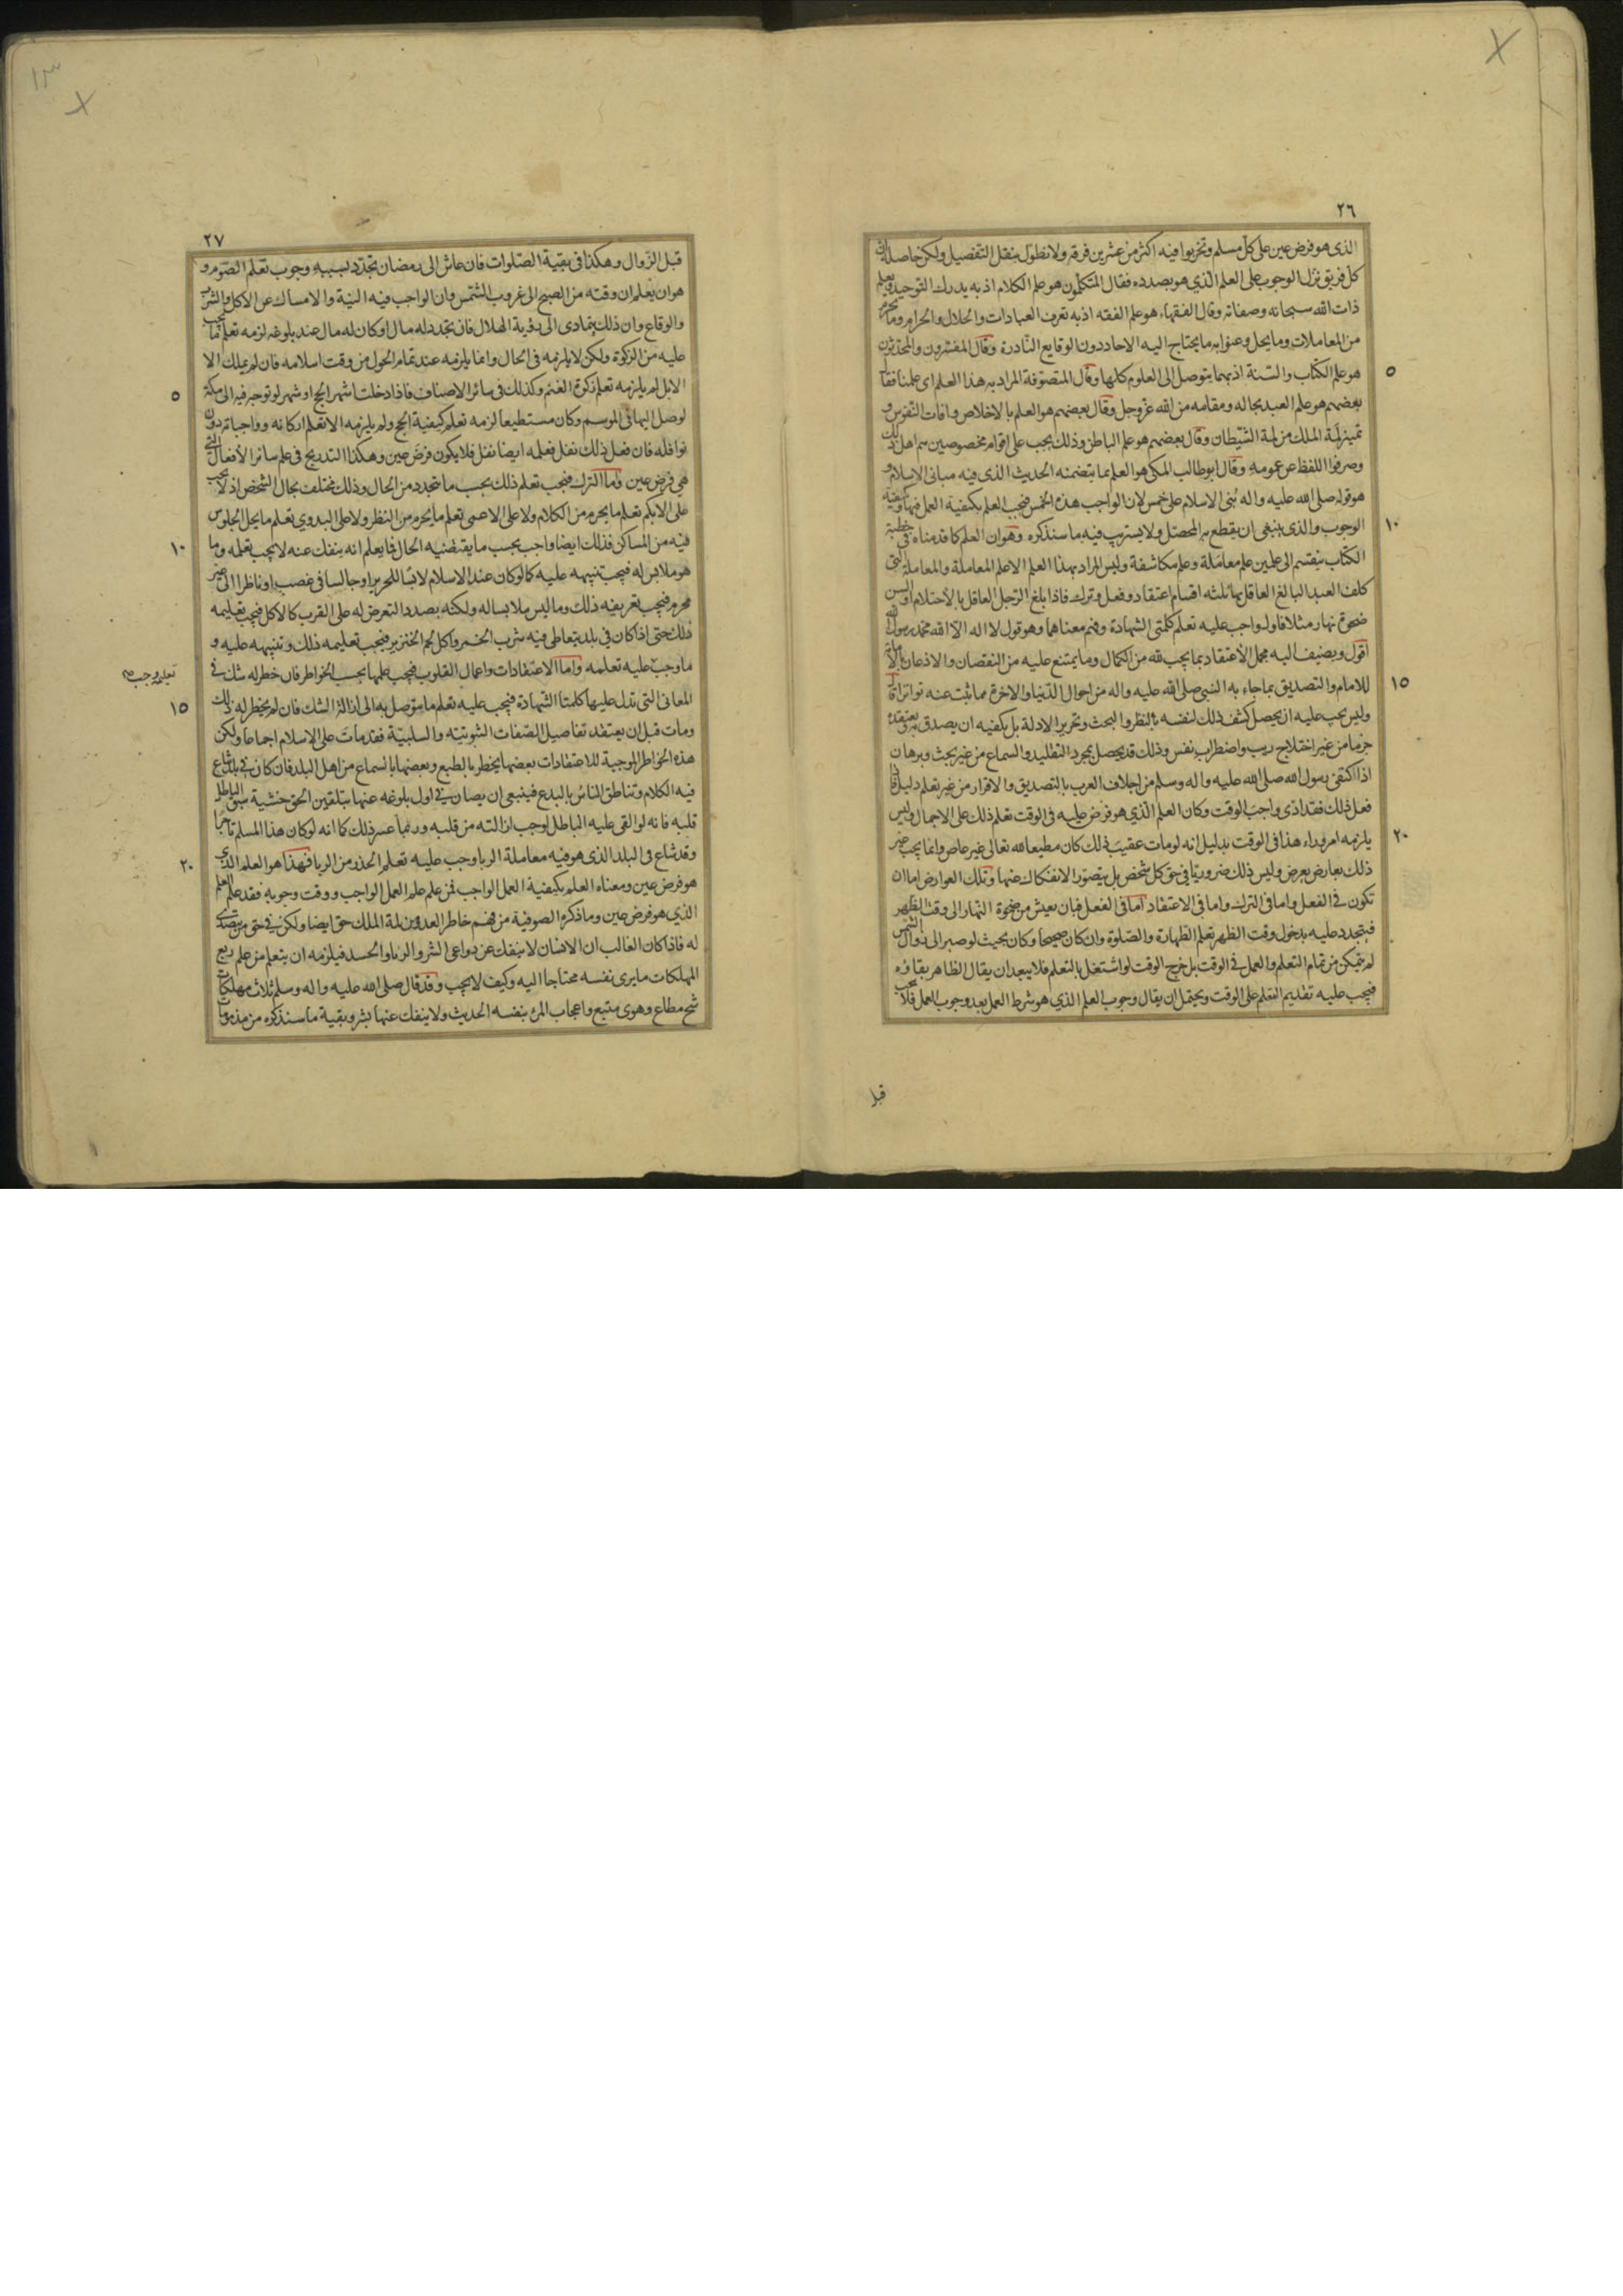 ٢٦
الذى هو فرض عين على كل مسلم وتحزبوا فيه اكثر من عشرين فرقة ولا نطول بنقل التفصيل ولكن حاصله ان
كل فريق نزل الوجوب على العلم الذي هو بصدده فقال المتكلمون هو علم الكلام اذ به يدرك التوحيد ويعلم
ذات الله سبحانه وصفاته وقال الفقهاء هو علم الفقه اذ به تعرف العبادات والحلال والحرام وما يحرم
من المعاملات وما يحل وعنوا به ما يحتاج اليه الاحاد دون الوقايع النادرة وقال المفسرون والمحدثون
٥
هو علم الكتاب والسنة اذ بهما يتوصل الى العلوم كلها وقال المتصوفة المراد به هذا العلم اى علمنا فقال
بعضهم هو علم العبد بحاله ومقامه من الله عز وجل وقال بعضهم هو العلم بالاخلاص وافات النفوس و
تميز لمة الملك من لمة الشيطان وقال بعضهم هو علم الباطن وذلك يجب على اقوام مخصوصين هم اهل ذلك
وصرفوا اللفظ عن عمومه وقال ابو طالب المكى هو العلم بما يتضمنه الحديث الذى فيه مبانى الاسلام و
هو قوله صلى الله عليه واله بنى الاسلام على خمس لان الواجب هذه الخمس فيجب العلم بكيفية العمل فيها وكيفية
١٠
الوجوب والذى ينبغى ان يقطع به المحصل ولا يستريب فيه ما سنذكره وهو ان العلم كما قدمناه فى خطبة
الكتاب ينقسم الى علمين علم معاملة وعلم مكاشفة وليس المراد بهذا العلم الا علم المعاملة والمعاملة التى
كلف العبد البالغ العاقل بها ثلثه اقسام اعتقاد وفعل وترك فاذا بلغ الرجل العاقل بالاحتلام او السن
ضحوة نهار مثلا فاول واجب عليه تعلم كلمتى الشهادة وفهم معناهما وهو قول لا اله الا الله محمد رسول الله
اقول ويضيف اليه مجمل الاعتقاد بما يجب لله من الكمال وما يمتنع عليه من النقصان والاذعان
١٥
للامام والتصديق بما جاء به النبى صلى الله عليه واله من احوال الدنيا والاخرة مما ثبت عنه تواترا قال
وليس يجب عليه ان يحصل كشف ذلك لنفسه بالنظر والبحث وتحرير الادلة بل يكفيه ان يصدق به ويعتقده
جزما من غير اختلاج ريب واضطراب نفس وذلك قد يحصل بمجرد التقليد والسماع من غير بحث وبرهان
اذ اكتفى رسول الله صلى الله عليه واله وسلم من اجلاف العرب بالتصديق والاقرار من غير تعلم دليل فاذا
فعل ذلك فقد ادى واجب الوقت وكان العلم الذي هو فرض عليه فى الوقت تعلم ذلك على الاجمال وليس
٢٠
يلزمه امر وراء هذا فى الوقت بدليل انه لو مات عقيب ذلك كان مطيعا لله تعالى غير عاص وانما يجب غير
ذلك بعارض يعرض وليس ذلك ضروريا في حق كل شخص بل يتصور الانفكاك عنها وتلك العوارض اما ان
تكون فى الفعل واما فى الترك واما فى الاعتقاد اما فى الفعل فبان يعيش من ضحوة النهار الى وقت الظهر
فيتجدد عليه بدخول وقت الظهر تعلم الطهارة والصلوة وان كان صحيحا وكان بحيث لو صبر الى زوال الشمس
لم يتمكن من تمام التعلم والعمل فى الوقت بل خرج الوقت لو اشتغل بالتعلم فلا يبعد ان يقال الظاهر بقاؤه
فيجب عليه تقديم التعلم على الوقت ويحتمل ان يقال وجوب العلم الذي هو شرط العمل بعد وجوب العمل فلا يجب
قبل
٢٧
قبل الزوال وهكذا فى بقية الصلوات فان عاش الى رمضان تجدد بسببه وجوب تعلم الصوم و
هو ان يعلم ان وقته من الصبح الى غروب الشمس وان الواجب فيه النية والامساك عن الاكل والشرب
والوقاع وان ذلك يتمادى الى رؤية الهلال فان تجدد له مال او كان له مال عند بلوغه لزمه تعلم ما يجب
عليه من الزكوة ولكن لا يلزمه فى الحال وانما يلزمه عند تمام الحول من وقت اسلامه فان لم يملك الا
٥
الابل لم يلزمه تعلم زكوة الغنم وكذلك فى سائر الاصناف فاذا دخلت اشهر الحج او شهر لو توجه فيه الى مكة
لوصل اليها فى الموسم وكان مستطيعا لزمه تعلم كيفية الحج ولم يلزمه الا تعلم اركانه وواجباته دون
نوافله فان فعل ذلك نفل فعلمه ايضا نفل فلا يكون فرض عين وهكذا التدريج فى علم سائر الافعال التى
هى فرض عين واما الترك فيجب تعلم ذلك بحسب ما يتجدد من الحال وذلك يختلف بحال الشخص اذ لا يجب
على الابكم تعلم ما يحرم من الكلام ولا على الاعمى تعلم ما يحرم من النظر ولا على البدوي تعلم ما يحل الجلوس
١٠
فيه من المساكن فذلك ايضا واجب بحسب ما يقتضيه الحال فما يعلم انه ينفك عنه لا يجب تعلمه وما
هو ملابس له فيجب تنبيهه عليه كما لو كان عند الاسلام لابسا للحرير او جالسا فى غصب او ناظرا الى غير
محرم فيجب تعريفه ذلك وما ليس ملابسا له ولكنه بصدد التعرض له على القرب كالاكل فيجب تعليمه
ذلك حتى اذا كان في بلد يتعاطى فيه شرب الخمر واكل لحم الخنزير فيجب تعليمه ذلك وتنبيهه عليه و
ما وجب عليه تعلمه واما الاعتقادات واعمال القلوب فيجب علمها بحسب الخواطر فان خطر له شك فى
١٥
المعانى التى تدل عليها كلمتا الشهادة فيجب عليه تعلم ما يتوصل به الى ازالة الشك فان لم يخطر له ذلك
ومات قبل ان يعتقد تفاصيل الصفات الثبوتية والسلبية فقد مات على الاسلام اجماعا ولكن
هذه الخواطر الموجبة للاعتقادات بعضها يخطر بالطبع وبعضها بالسماع من اهل البلد فان كان فى بلد شاع
فيه الكلام وتناطق الناس بالبدع فينبغى ان يصان فى اول بلوغه عنها بتلقين الحق خشية سبق الباطل
قلبه فانه لو القى عليه الباطل لوجب ازالته من قلبه وربما عسر ذلك كما انه لو كان هذا المسلم تاجرا
٢٠
وقد شاع فى البلد الذى هو فيه معاملة الربا وجب عليه تعلم الحذر من الربا فهذا هو العلم الذى
هو فرض عين ومعناه العلم بكيفية العمل الواجب فمن علم علم العمل الواجب ووقت وجوبه فقد علم العلم
الذي هو فرض عين وما ذكره الصوفية من فهم خاطر العدو ومن لمة الملك حق ايضا ولكن فى حق من يتصدى
له فاذا كان الغالب ان الانسان لا ينفك عن دواعى الشر والرياء والحسد فيلزمه ان يتعلم من علم ربع
المهلكات ما يرى نفسه محتاجا اليه وكيف لا يجب وقد قال صلى الله عليه واله وسلم ثلاث مهلكات
شح مطاع وهوى متبع واعجاب المرء بنفسه الحديث ولا ينفك عنها بشر وبقية ما سنذكره من مذمومات